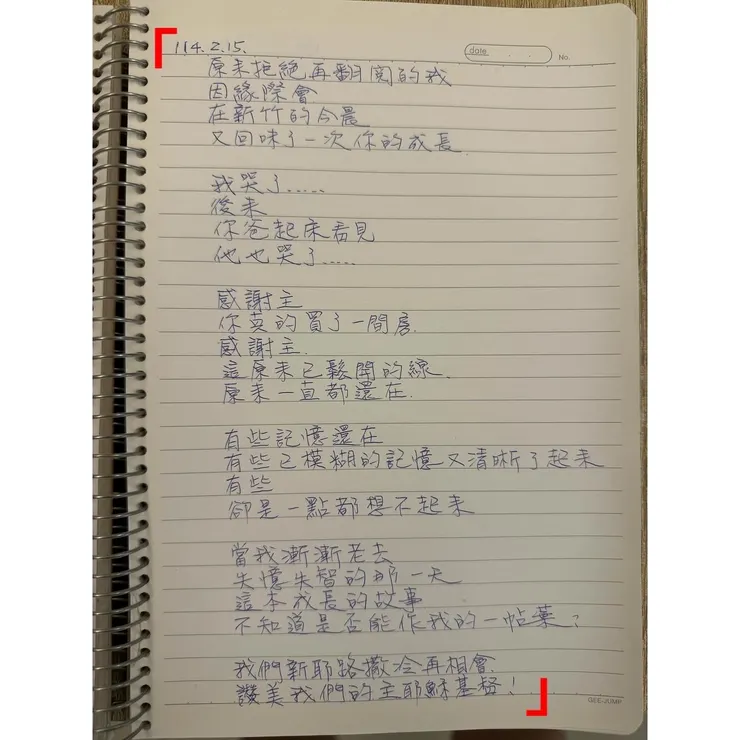 114.2.15.
date
No.
原來拒絕再翻閱的我
因緣際會
在新竹的今晨
又回味了一次你的成長.
我哭了.....
後來
你爸起床看見
他也哭了.....
感謝主
你真的買了一間房.
感謝主.
這原來已鬆開的線.
原來一直都還在.
有些記憶還在
有些已模糊的記憶又清晰了起來
有些
卻是一點都想不起來
當我漸漸老去
失憶失智的那一天
這本成長的故事
不知道是否能作我的一帖藥?
我們新耶路撒冷再相會.
讚美我們的主耶穌基督!
GEE-JUMP